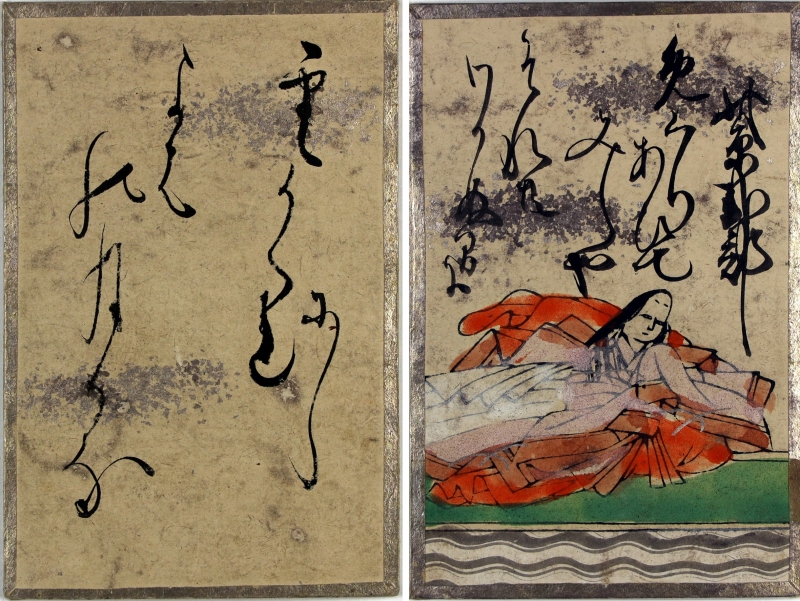 紫式部
免くりあひて
みしや
それとも
わかぬ間に
雲かくれ
にし
よは
の月かな